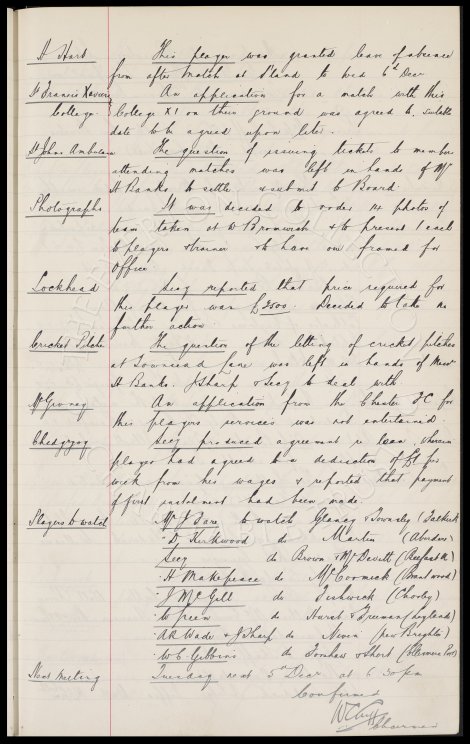 H Hart This player was granted leave of absence
from after match at S'land to Wed 6th Decr
St Francis Xaviers An application for a match with this
College College XI on their ground was agreed to, suitable
date to be agreed upon later.
St Johns Ambulance The question of issuing tickets to members
attending matches was left in hands of Mr
H Banks to settle & submit to Board.
Photographs It was decided to order 14 photos of
team taken at W Bromwich & to present 1 each
to players & trainer & to have one framed for
Office
Lockhead Secy reported that price required for
this player was £2500. Decided to take no
further action.
Cricket Pitche The question of the letting of cricket pitches
at Townsend Lane was left in hands of Messrs
H Banks. J Sharp & Secy to deal with.
An application from the Chester FC for
this players services was not entertained.
Chedgzoy Secy produced agreement re loan, wherein
player had agreed to a deduction of £1 per
week from his wages & reported that payment
of first instalment had been made.
Players to watch Mr J Fare to watch Glancy & Townsley (Falkirk)
" D Kirkwood do Martin (Aberdeen)
Secy do Brown & McDevitt (Belfast)
" H Makepeace do McCormick (Brentwood)
" J McGill do Fishwick (Chorley)
" W Green do Hurst & Freeman (Leyland)
A R Wade & J Sharp do Niven (New Brighton)
W C Gibbins do & Short (Ellesmere Port)
Next Meeting Tuesday next 5th Decr at 6 30 pm
Confirmed
W C Cuff
Chairman